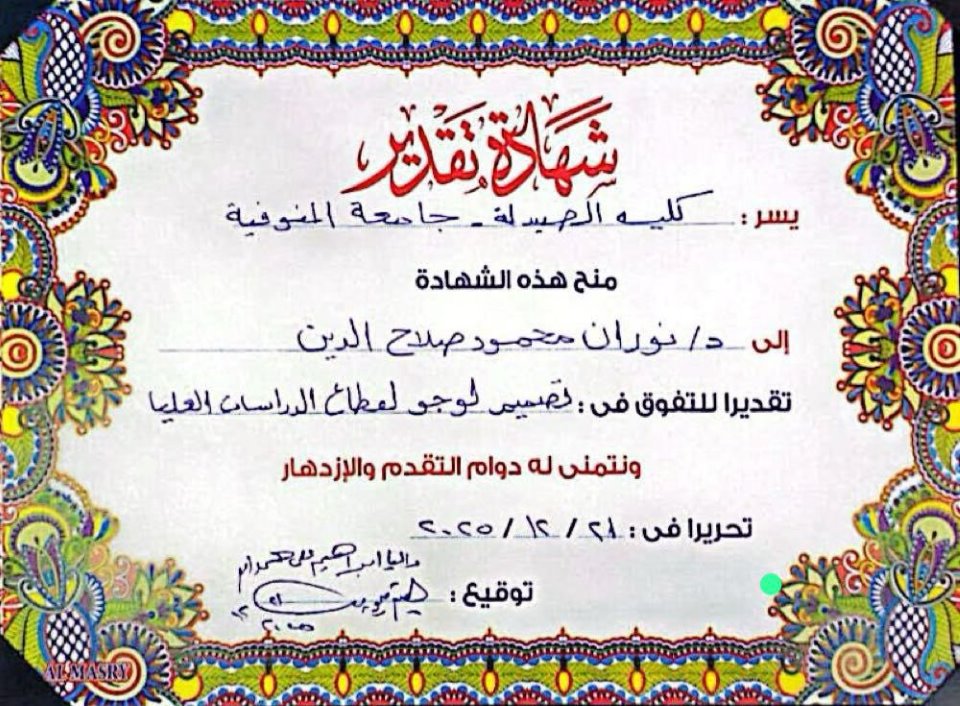 شهادة تقدير
يسر : كلية الصيدلة - جامعة المنوفية
منح هذه الشهادة
إلى د/ نوران محمود صلاح الدين
تقديرا للتفوق فى : تصميم لوجو لقطاع الدراسات العليا
ونتمنى له دوام التقدم والإزدهار
تحريرا فى : ٢١ / ١٢ / ٢٠٢٥
توقيع :
AL-MASRY